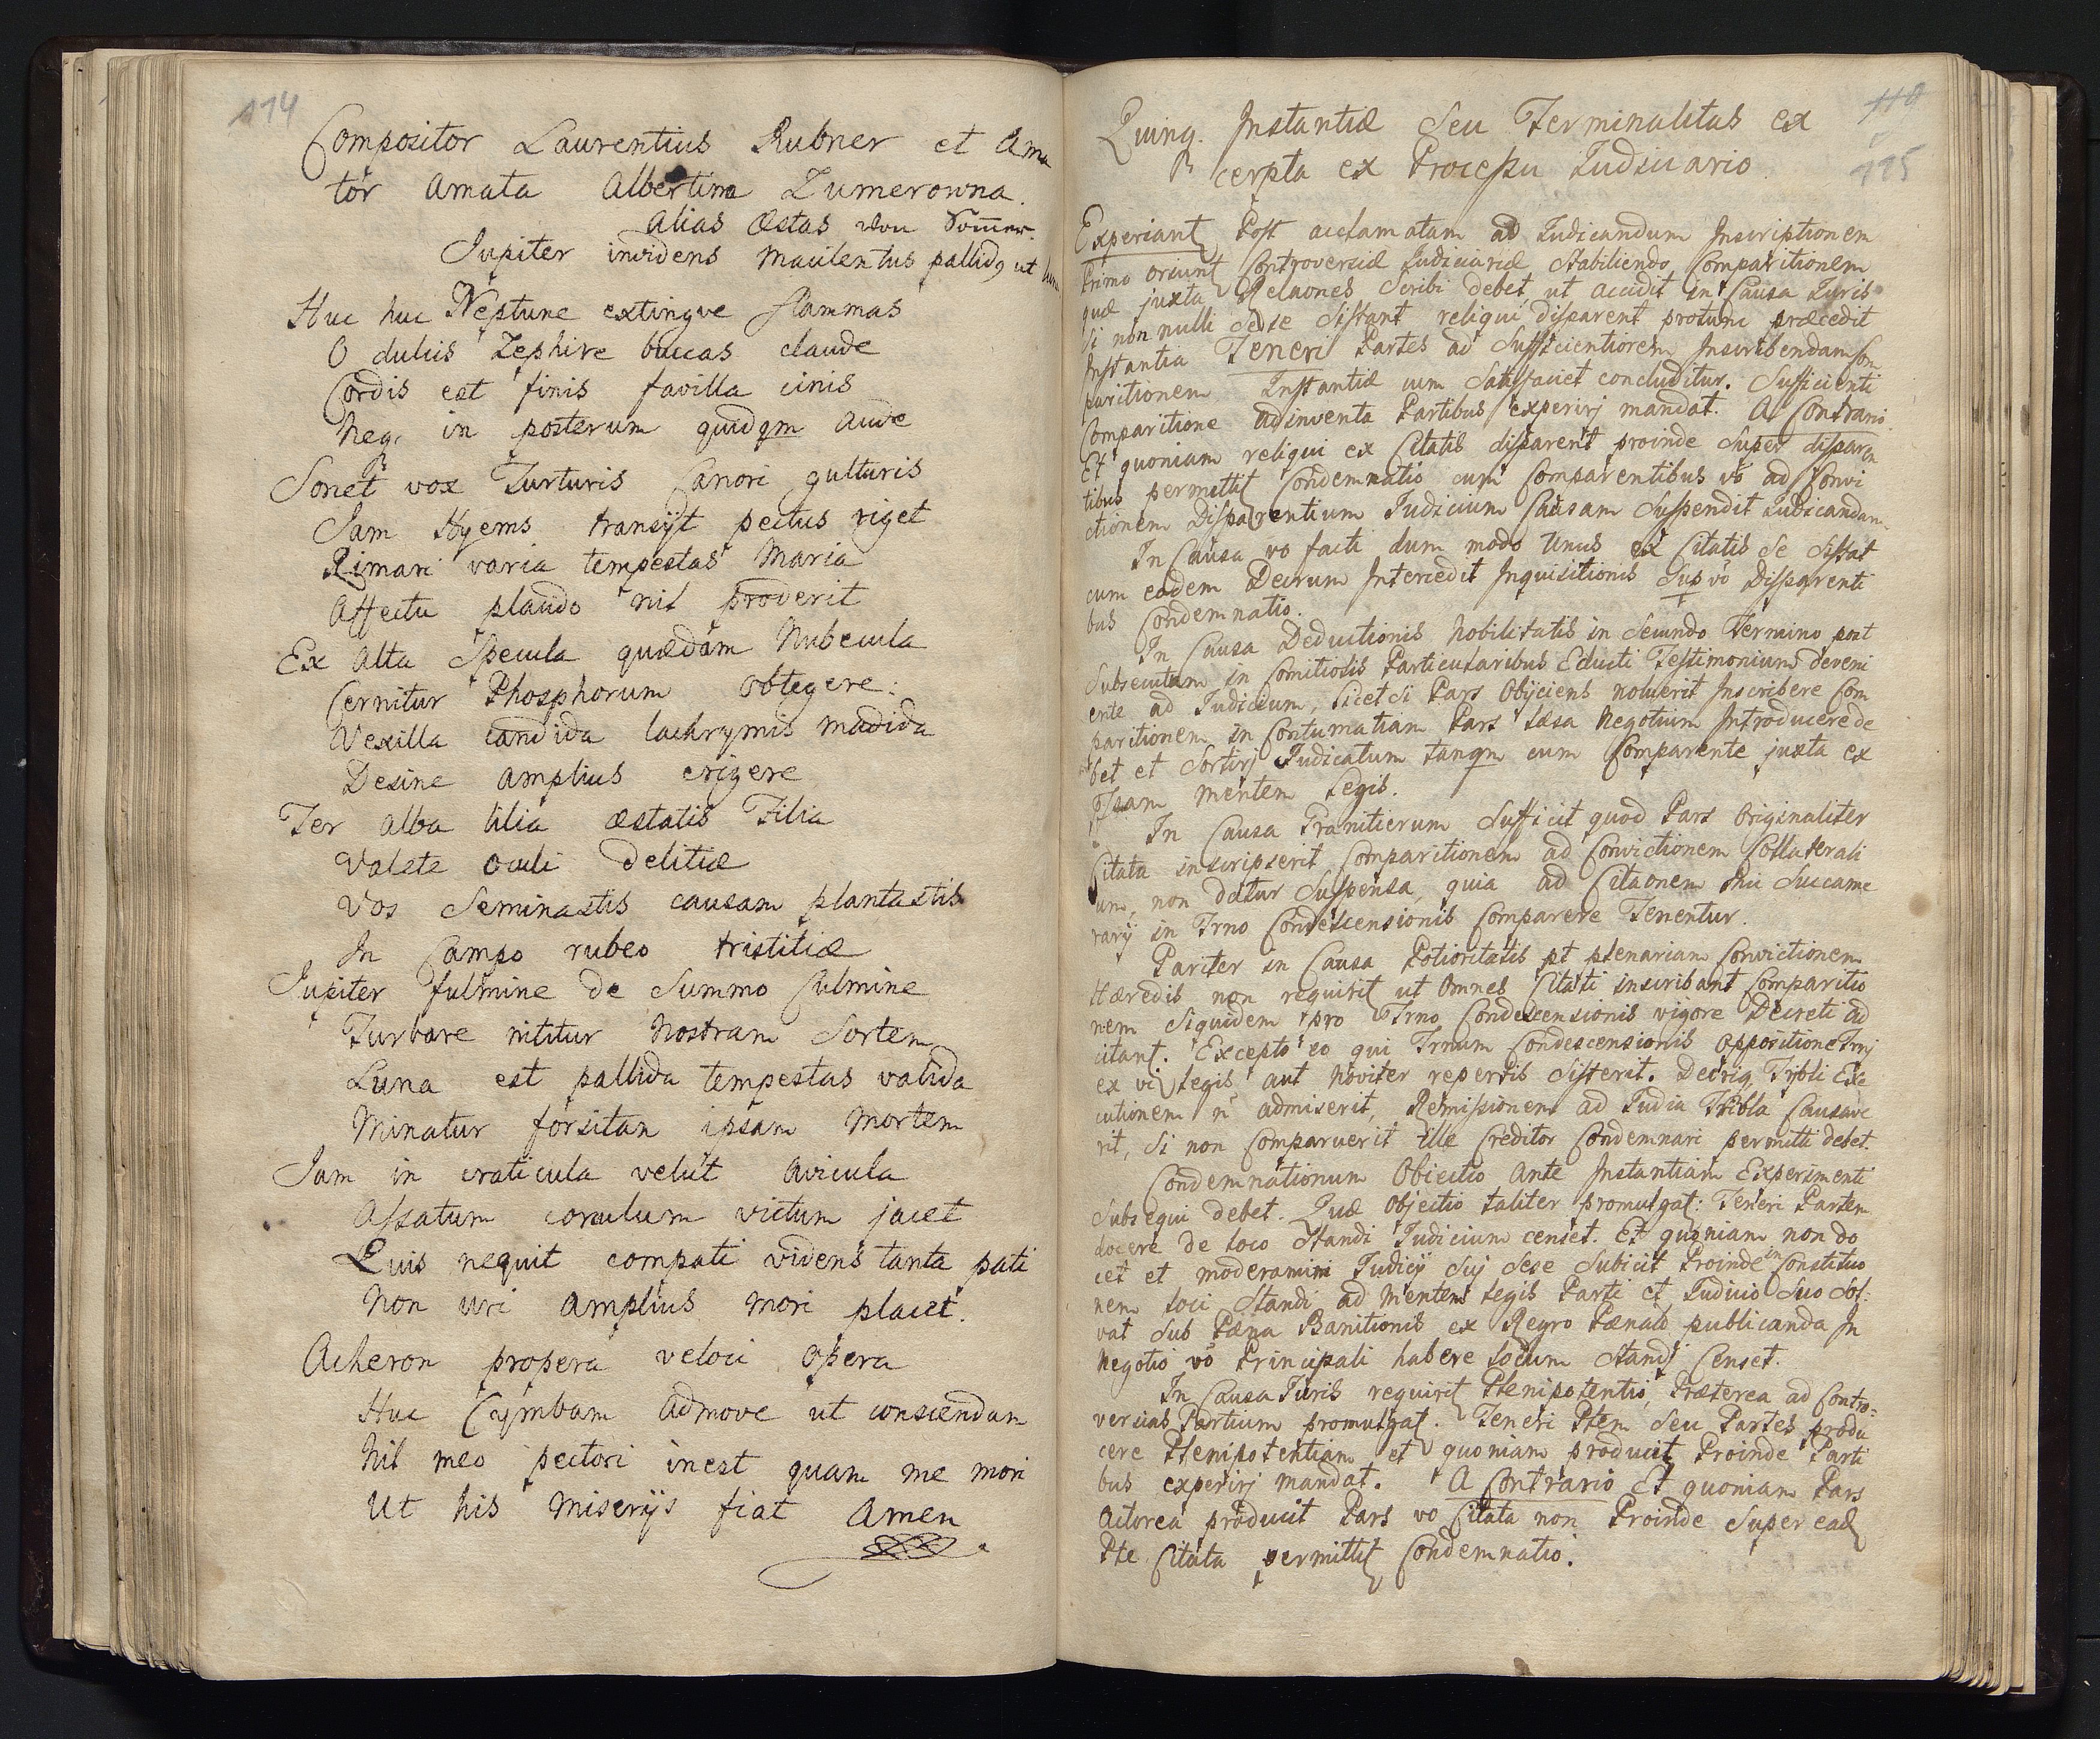 114
Compositor Laurentius Rubner et Ama
tor Amata Albertina Zumerowna.
Alias Æstas von
Jupiter invidens Macilentus pallidꝰ ut
Huc huc Neptune extingve flammas
O dulcis Zephire buccas claude
Cordis est finis favilla cinis
Neqꝫ in posterum quidqm aude
Sonet vox Turturis Canori gutturis
Jam Hyems transijt pectus riget
Rimari varia tempestas Maria
Affectu plaudo nil proderit
Ex Alta Specula quædam Nubecula
Cernitur Phosphorum obtegere:
Vexilla candida lachrymis madida
Desine amplius erigere
Ter alba lilia æstatis Filia
Valete oculi delitiæ
Vos Seminastis causam plantastis
In Campo rubeo tristitiæ
Jupiter fulmine de Summo Culmine
Turbare nititur Nostram Sortem
Luna est pallida tempestas valida
Minatur forsitan ipsam Mortem
Jam in craticula velut Avicula
Assatum corculum victum jacet
Quis nequit compati videns tanta pati
Non uri amplius mori placet.
Acheron propera veloci opera
Huc Cymbam Admove ut conscendam
Nil meo pectori inest quam me mori
Ut his Miserijs fiat Amen
115
Instantiæ Seu Terminalitas ex
cerpta ex Processu Judiciario.
Experiantꝛ Post acclamatam ad Judicandum Inscriptionem
Primo oriuntꝛ Controversiæ Judiciariæ stabiliendo Comparitionem
quæ juxta Relaones Scribi debet, ut accidit in Causa Juris
Si non nulli Sese Sistant reliqui disparent protunc præcedit
Instantia Teneri Partes ad Sufficientiorem Inscribendam Com
paritionem Instantiæ cum Satisfaciet concluditur. Sufficienti
Comparitione adinventa Partibus experirj mandat. A Contrario.
Et quoniam reliqui ex Citatis disparent proinde Super disparen
tibus permittitꝛ Condemnatio cum Comparentibus vo ad Convi
ctionem Disparentium Judicium Causam Suspendit Judicandam.
In Causa vo facti dum modo Unus ex Citatis Se Sistat
cum eodem Decrum Intercedit Inquisitionis Sup vo Disparenti
bus Condemnatio.
In Causa Deductionis Nobilitatis in Secundo Termino post
Subsecutam in Comitiolis Particularibus Educti Testimonium deveni
ente ad Judicium, licet Si Pars Obijciens noluerit Inscribere Com
paritionem in Contumatiam Pars læsa Negotium Introducere de
bet et Sortirj Judicatum tanqm cum Comparente juxta ex
pssam mentem Legis.
In Causa Granitierum Sufficit quod Pars Originaliter
Citata inscripserit Comparitionem ad Convictionem Collaterali
um, non datur Suspensa, quia ad Citaonem Phii Succame
rarij in Trno Condescensionis Comparere Tenentur.
Pariter in Causa Potioritatis pt plenariam Convictionem
Hæredis non requiritꝛ ut Omnes Citati inscribant Comparitio
nem Siquidem pro Trno Condescensionis vigore Decreti ad
citantꝛ. Excepto eo qui Trnum Condescensionis Oppositione Trnj
ex vi legis aut Noviter repertis Sisterit. Decriqꝫ Trbli Exe
cutionem n admiserit, Remissionem ad Judia Tribla Causave
rit, Si non Comparuerit ille Creditor Condemnari permitti debet.
Condemnationum Obiectio Ante Instantiam Experimenti
Subsequi debet. Quæ Objectio taliter promulgatꝛ: Teneri Partem
docere de loco Standi Judicium censet. Et quoniam non do
cet et moderamini Judicij Sui Sese Subicit Proinde in Constitutio
nem loci Standi ad Mentem Legis Parti et Judicio Suo Sol:
vat Sub Pæna Banitionis ex Regro Pænali publicanda In
Negotio vo Principali habere locum Standi Censet.
In Causa Juris requiritꝛ Plenipotentio, Præterea ad Contro=
versias Partium promulgatꝛ. Teneri Ptem Seu Partes produ
cere Plenipotentiam et quoniam producit Proinde Parti
bus experirj mandat. A Contrario Et quoniam Pars
Actorea producit Pars vo Citata non Proinde Super eadꝫ
Pte Citata permittitꝛ Condemnatio.